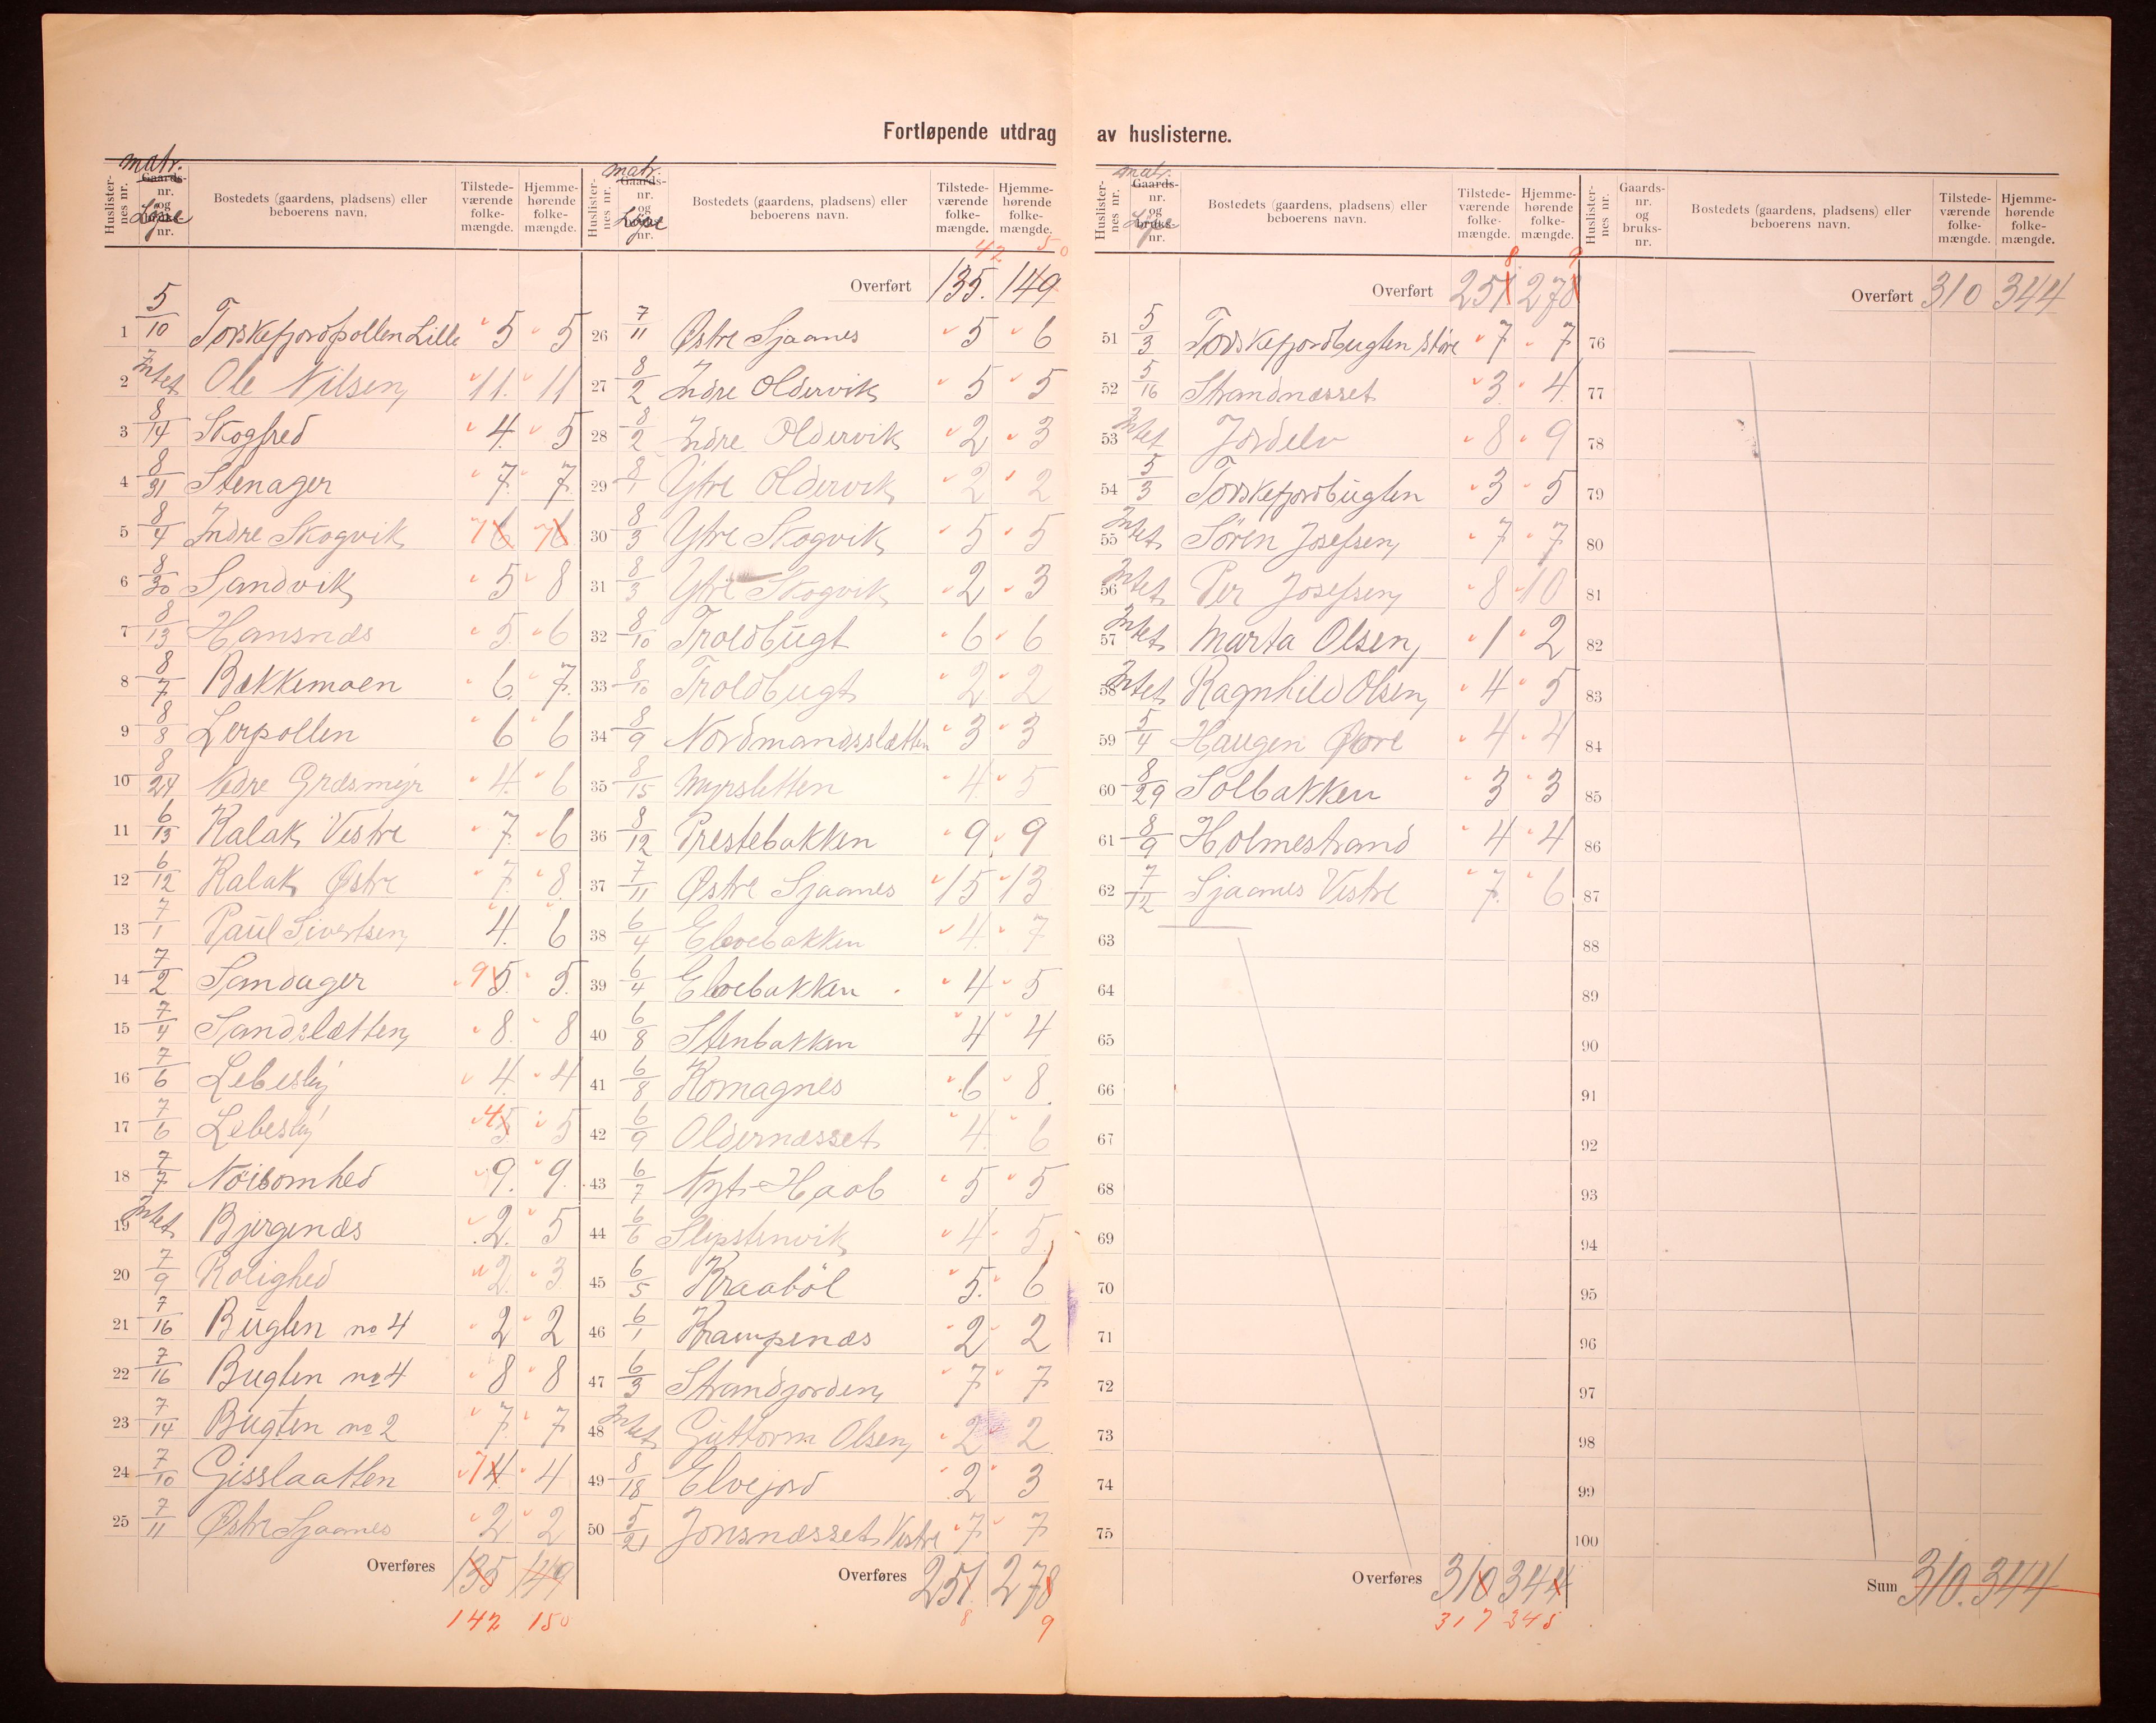 Fortløpende utdrag av huslisterne.
matr. Løpe
Huslisternes nr. Gaards-nr. og bruks-nr. Bostedets (gaardens, pladsens) eller beboerens navn. Tilstedeværende folkemængde. Hjemmehørende folkemængde.
1 5/10 Torskefjordpollen Lille 5 5
2 Intet Ole Nilsen 11 11
3 8/14 Skogfred 4 5
4 8/31 Stenager 7 7
5 8/4 Indre Skogvik 7 6 7 6
6 8/30 Sandvik 5 8
7 8/13 Hansnæs 5 6
8 8/7 Bækkemoen 6 7
9 8/8 Lerpollen 6 6
10 8/24 Nedre Græsmyr 4 6
11 6/13 Kalak Vestre 7 6
12 6/12 Kalak Østre 7 8
13 7/1 Paul Sivertsen 4 6
14 7/2 Sandager 9 5 5
15 7/4 Sandslætten 8 8
16 7/6 Lebesby 4 4
17 7/6 Lebesby 4 5 5
18 7/7 Nöisomhed 9 9
19 Intet Bjergenæs 2 5
20 7/9 Rolighed 2 3
21 7/16 Bugten no 4 2 2
22 7/16 Bugten no 4 8 8
23 7/14 Bugten no 2 7 7
24 7/10 Gisslaatten 7 4 4
25 7/11 Østre Sjaanes 2 2
Overføres 135 149
142 150
matr. Løpe
Huslisternes nr. Gaards-nr. og bruks-nr. Bostedets (gaardens, pladsens) eller beboerens navn. Tilstedeværende folkemængde. Hjemmehørende folkemængde.
42 50
Overført 135. 149
26 7/11 Østre Sjaanes 5 6
27 8/2 Indre Oldervik 5 5
28 8/2 Indre Oldervik 2 3
29 8/1 Ytre Oldervik 2 2
30 8/3 Ytre Skogvik 5 5
31 8/3 Ytre Skogvik 2 3
32 8/10 Troldbugt 6 6
33 8/10 Troldbugt 2 2
34 8/9 Nordmandsslætten 3 3
35 8/15 Myrsletten 4 5
36 8/12 Prestebakken 9 9
37 7/11 Østre Sjaanes 15 13
38 6/4 Elvebakken 4 7
39 6/4 Elvebakken 4 5
40 6/8 Stenbakken 4 4
41 6/8 Komagnes 6 8
42 6/9 Oldernæsset 4 6
43 6/7 Nyt-Haab 5 5
44 6/6 Slepstenvik 4 5
45 6/5 Kraaböl 5 6
46 6/1 Krampenæs 2 2
47 6/3 Strandjorden 7 7
48 Intet Guttorm Olsen 2 2
49 8/18 Elvejord 2 3
50 5/21 Jonsnæsset Vestre 7 7
Overføres 251 278
8 9
matr. Løpe
Huslisternes nr. Gaards-nr. og bruks-nr. Bostedets (gaardens, pladsens) eller beboerens navn. Tilstedeværende folkemængde. Hjemmehørende folkemængde.
8 9
Overført 251 278
51 5/3 Torskefjordbugten store 7 7
52 5/16 Strandnæsset 3 4
53 Intet Jordelv 8 9
54 5/3 Torskefjordbugten 3 5
55 Intet Sören Josefsen 7 7
56 Intet Per Josefsen 8 10
57 Intet Marta Olsen 1 2
58 Intet Ragnhild Olsen 4 5
59 5/4 Haugen Øvre 4 4
60 8/29 Solbakken 3 3
61 8/9 Holmestrand 4 4
62 7/12 Sjaanes Vestre 7 6
63
64
65
66
67
68
69
70
71
72
73
74
75
Overføres 310 344
317 345
Huslisternes nr. Gaards-nr. og bruks-nr. Bostedets (gaardens, pladsens) eller beboerens navn. Tilstedeværende folkemængde. Hjemmehørende folkemængde.
Overført 310 344
76
77
78
79
80
81
82
83
84
85
86
87
88
89
90
91
92
93
94
95
96
97
98
99
100
Sum 310. 344